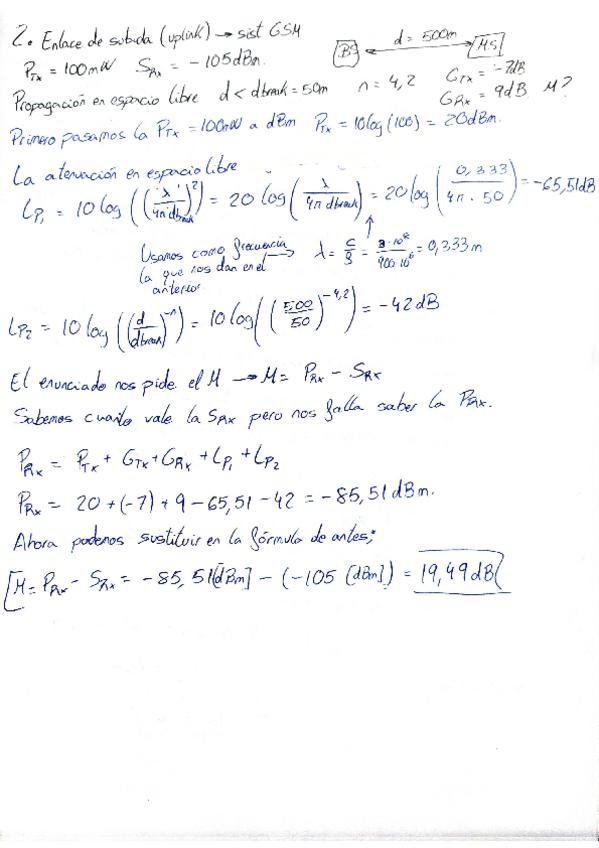 2. Enlace de subida (uplink) → sist GSM
BS d = 500m MS
P_Tx = 100mW S_Rx = -105dBm.
Propagación en espacio libre d < dbreak = 50m n = 4,2 G_Tx = -7dB G_Rx = 9dB M?
Primero pasamos la P_Tx = 100mW a dBm P_Tx = 10log(100) = 20dBm.
La atenuación en espacio libre
L_P1 = 10log((λ/4π dbreak)^2) = 20log(λ/4π dbreak) = 20log(0,333/4π·50) = -65,51dB
Usamos como frecuencia
la que nos dan en el → λ = c/f = 3·10^8/900·10^6 = 0,333m
anterior
L_P2 = 10log((d/dbreak)^-n) = 10log((500/50)^-4,2) = -42dB
El enunciado nos pide el M → M = P_Rx - S_Rx
Sabemos cuanto vale la S_Rx pero nos falla saber la P_Rx.
P_Rx = P_Tx + G_Tx + G_Rx + L_P1 + L_P2
P_Rx = 20 + (-7) + 9 - 65,51 - 42 = -85,51dBm.
Ahora podemos sustituir en la fórmula de antes;
M = P_Rx - S_Rx = -85,51[dBm] - (-105 [dBm]) = 19,49dB